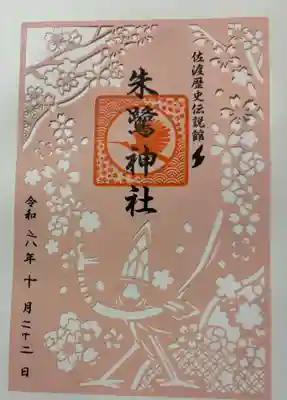 佐渡歴史伝説館
朱鷺神社
令和六年十月二十二日